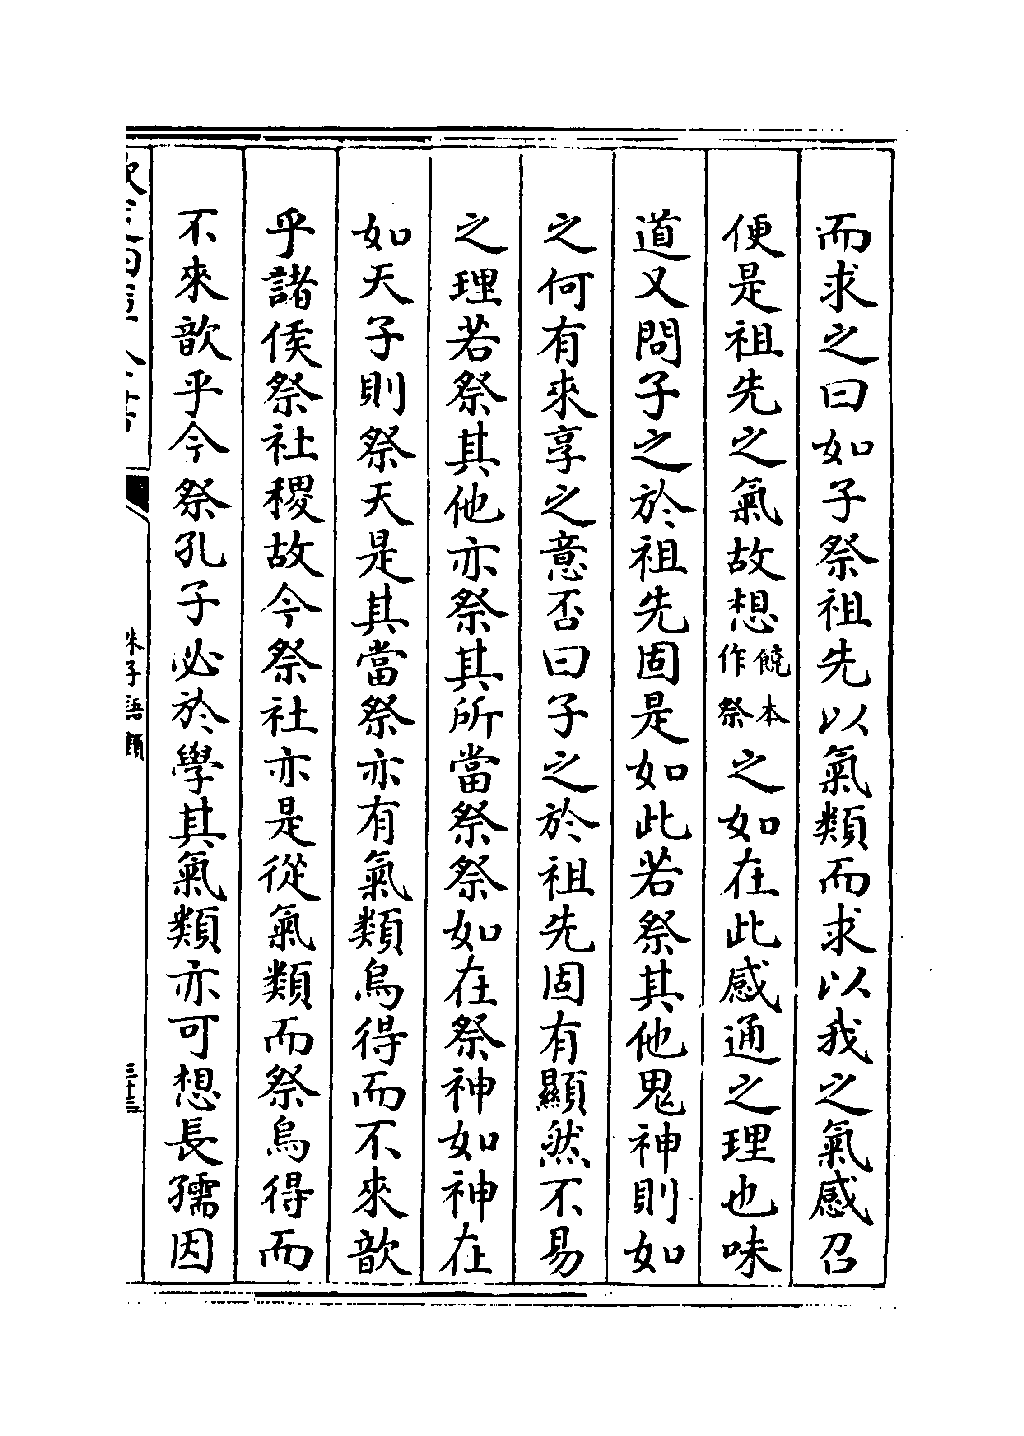 而求之曰如子祭祖先以氣類而求以我之氣感召
便是祖先之氣故想饒本作祭之如在此感通之理也味
道又問子之於祖先固是如此若祭其他鬼神則如
之何有來享之意否曰子之於祖先固有顯然不易
之理若祭其他亦祭其所當祭祭如在祭神如神在
如天子則祭天是其當祭亦有氣類烏得而不來歆
乎諸侯祭社稷故今祭社亦是從氣類而祭烏得而
不來歆乎今祭孔子必於學其氣類亦可想長孺因
朱子語類